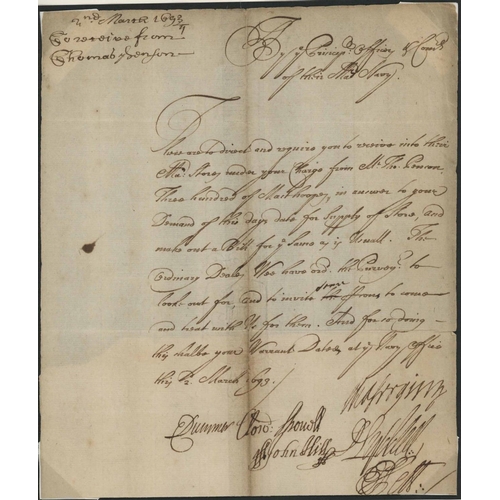 2nd. March 1693
To receive from
Thomas
By ye Princip:ll Officers & Com:rs
of their Ma:ts Navy.
These are to direct and require you to receive into their
Ma:ts Stores under your Charge from Mr. Tho:
Three hundred of Masthoopes, in answer to your
Demand of this days date for Supply of Store, and
make out a Bill for ye same as is Usuall. The
Ordinary Deales Wee have ord: the Purvey:r to
looke out for, and to invite some persons to come
and treat with Us for them. And for so doing
this shalbe your Warrant Dated at ye Navy Office
this 2. March 1693.
Edmd Dummer
John Hill